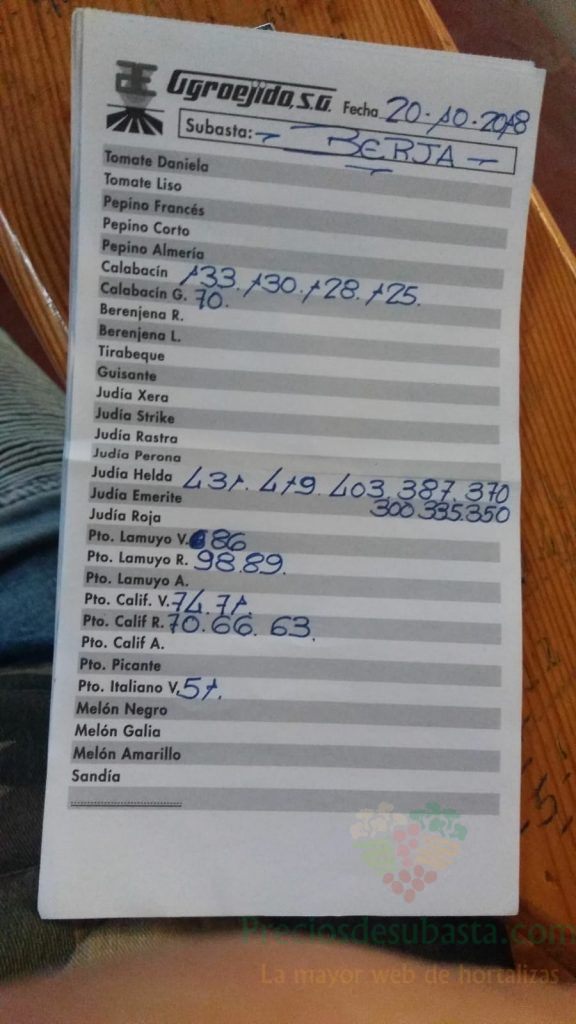 Agroejido, S.A. Fecha 20-10-2018
Subasta: - BERJA -
Tomate Daniela
Tomate Liso
Pepino Francés
Pepino Corto
Pepino Almería
Calabacín 133. 130. 128. 125.
Calabacín G. 70.
Berenjena R.
Berenjena L.
Tirabeque
Guisante
Judía Xera
Judía Strike
Judía Rastra
Judía Perona
Judía Helda 431. 419. 403. 387. 370
Judía Emerite 300. 335. 350
Judía Roja
Pto. Lamuyo V. 86
Pto. Lamuyo R. 98. 89.
Pto. Lamuyo A.
Pto. Calif. V. 74. 71.
Pto. Calif R. 70. 66. 63.
Pto. Calif A.
Pto. Picante
Pto. Italiano V. 51.
Melón Negro
Melón Galia
Melón Amarillo
Sandía
Preciosdesubasta.com
La mayor web de hortalizas